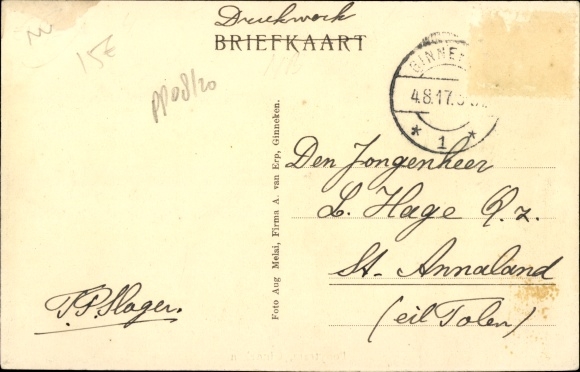 Drukwerk
BRIEFKAART
15€
pp08/20
GINNEKEN
4.8.17.
1
Foto Aug Melai, Firma A. van Erp, Ginneken.
Den Jongenheer
L. Hage Q.z.
St. Annaland
(eil Tolen)
T.P. Slager.